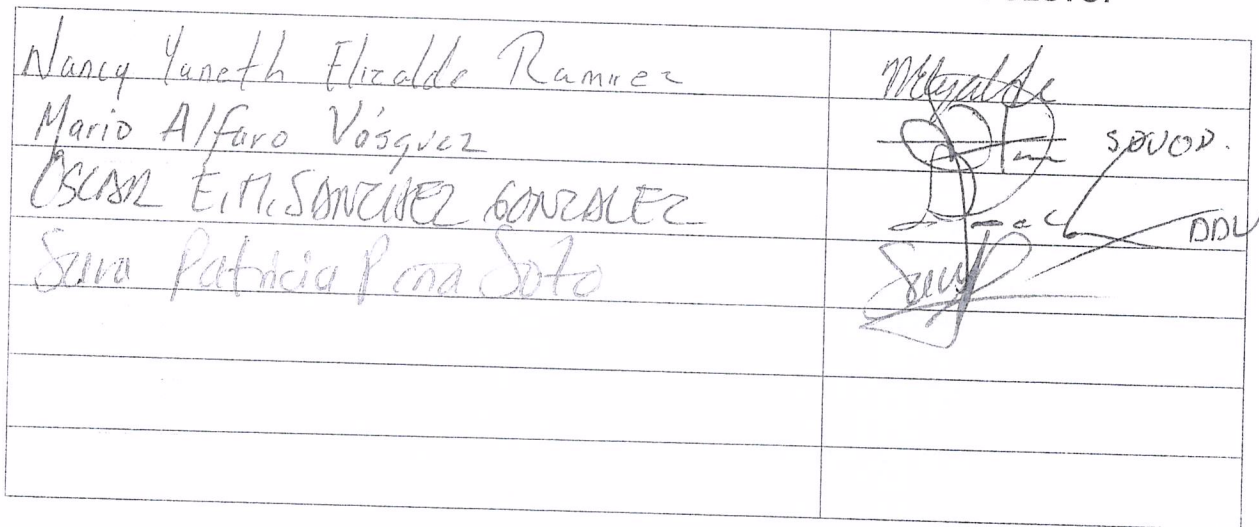 Nancy Yaneth Elizalde Ramirez
Mario Alfaro Vásquez SDUOP.
ÓSCAR E.M. SANCHEZ GONZALEZ
DDU
Sara Patricia Peña Soto